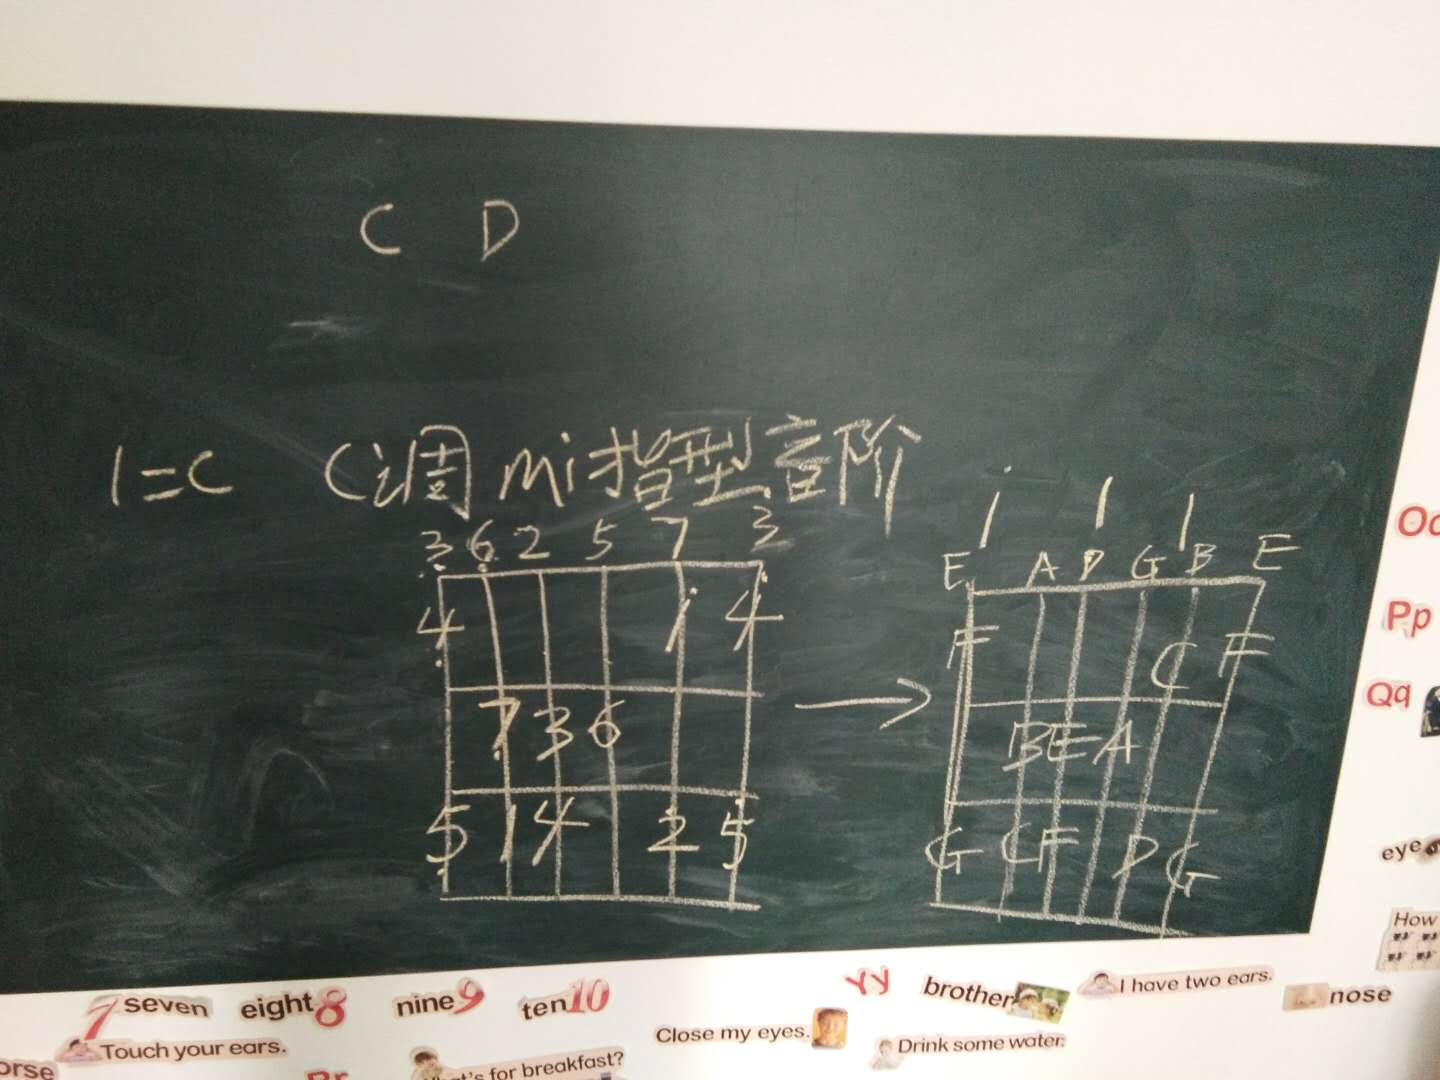 C D
1=C C调mi指型音阶
3 6 2 5 7 3
4 1 4
7 3 6
5 1 4 2 5
1 1 1
E A D G B E
F C F
B E A
G C F D G
Pp
Qq
eye
How
7 seven eight 8 nine 9 ten 10
Yy brother I have two ears. nose
Touch your ears.
Close my eyes. Drink some water.
for breakfast?